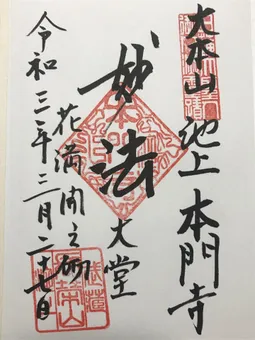 大本山 池上 本門寺
妙法
大堂
花満開之砌
令和三年三月二十七日